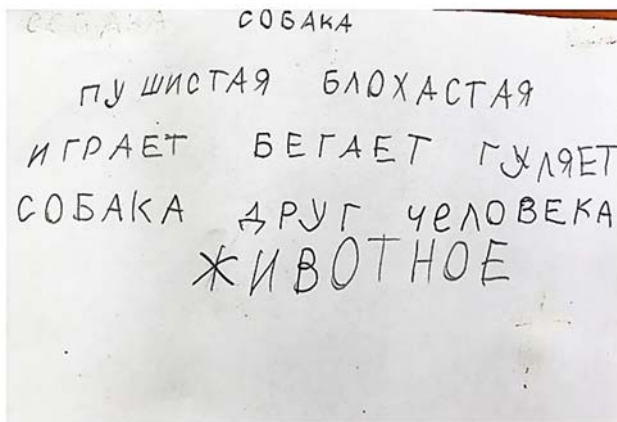 СОБАКА
ПУШИСТАЯ БЛОХАСТАЯ
ИГРАЕТ БЕГАЕТ ГУЛЯЕТ
СОБАКА ДРУГ ЧЕЛОВЕКА
ЖИВОТНОЕ